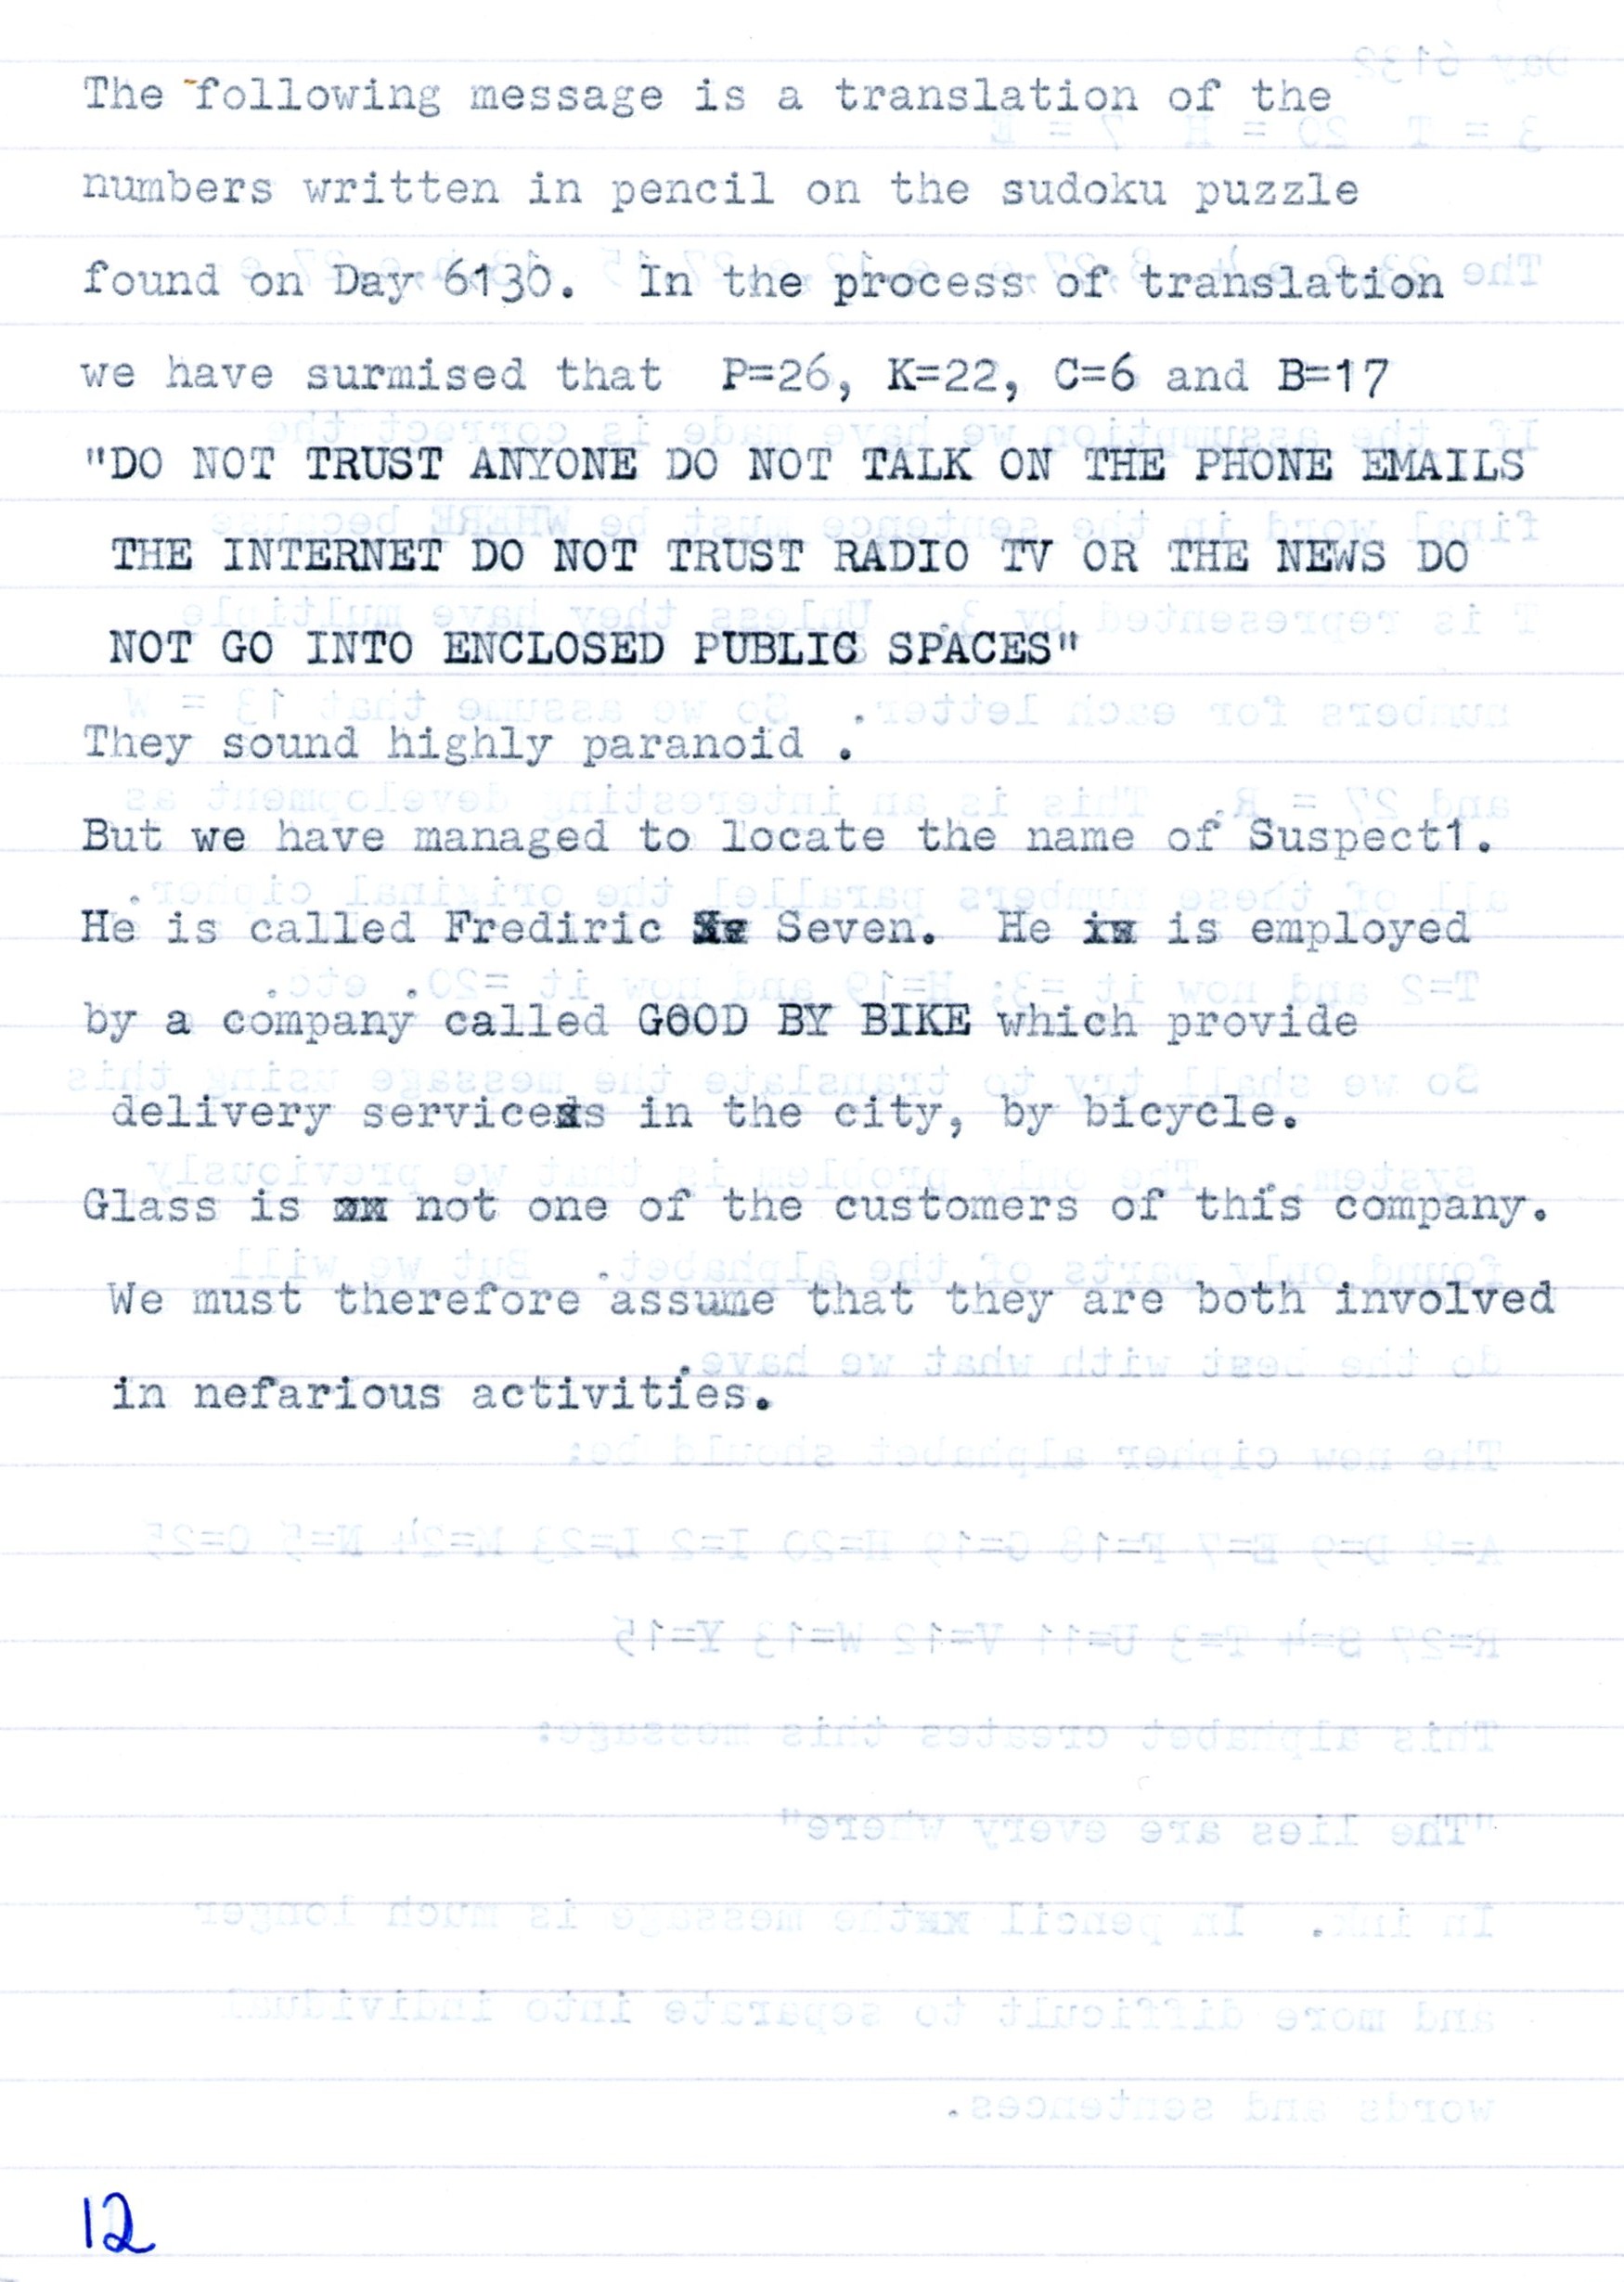 The following message is a translation of the
numbers written in pencil on the sudoku puzzle
found on Day 6130. In the process of translation
we have surmised that P=26, K=22, C=6 and B=17
"DO NOT TRUST ANYONE DO NOT TALK ON THE PHONE EMAILS
THE INTERNET DO NOT TRUST RADIO TV OR THE NEWS DO
NOT GO INTO ENCLOSED PUBLIC SPACES"
They sound highly paranoid .
But we have managed to locate the name of Suspect1.
He is called Frediric Seven. He is employed
by a company called GOOD BY BIKE which provide
delivery services in the city, by bicycle.
Glass is not one of the customers of this company.
We must therefore assume that they are both involved
in nefarious activities.
12